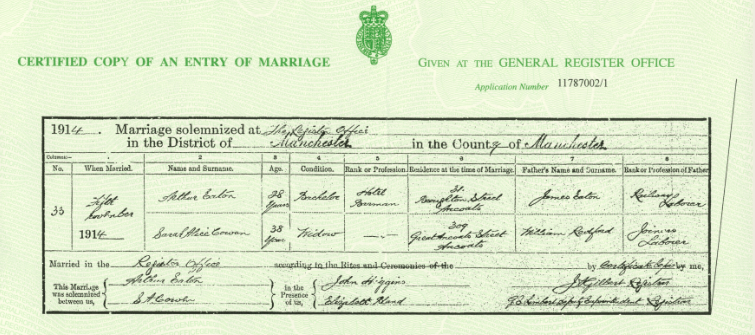 CERTIFIED COPY OF AN ENTRY OF MARRIAGE
GIVEN AT THE GENERAL REGISTER OFFICE
Application Number 11787002/1
1914. Marriage solemnized at The Register Office
in the District of Manchester in the County of Manchester
Columns:— 1 2 3 4 5 6 7 8
No. When Married. Name and Surname. Age. Condition. Rank or Profession. Residence at the time of Marriage. Father's Name and Surname. Rank or Profession of Father
33 Fifth 1914
Arthur Eaton 28 Years Bachelor Hotel Barman 31 Street Ancoats James Eaton Railway Laborer
Sarah Alice Cowen 38 Years Widow — 209 Great Ancoats Street Ancoats William Radford Joiner's Laborer
Married in the Register Office according to the Rites and Ceremonies of the by Certificate before by me,
This Marriage was solemnized between us,
Arthur Eaton
S A Cowen
in the Presence of us,
John Higgins
Elizabeth
J Gilbert Registrar
Superintendent Registrar